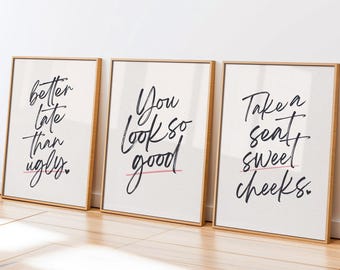 better
late
than
ugly.
You
look so
good
Take a
seat
sweet
cheeks.